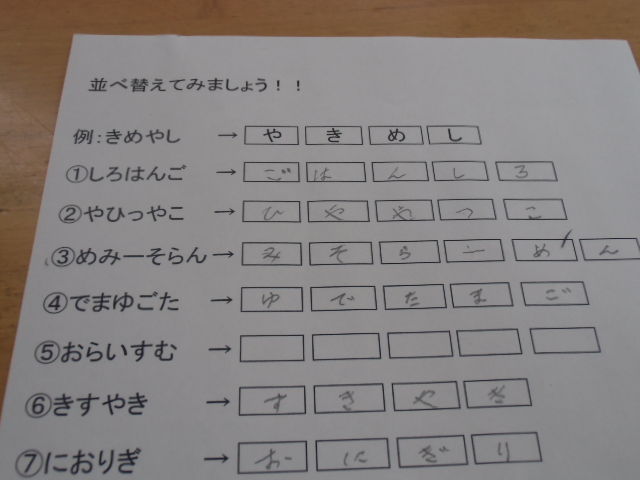 並べ替えてみましょう！！
例：きめやし → や き め し
①しろはんご → ご は ん し ろ
②やひっやこ → ひ や や っ こ
③めみーそらん → み そ ら ー め ん
④でまゆごた → ゆ で た ま ご
⑤おらいすむ →
⑥きすやき → す き や き
⑦におりぎ → お に ぎ り